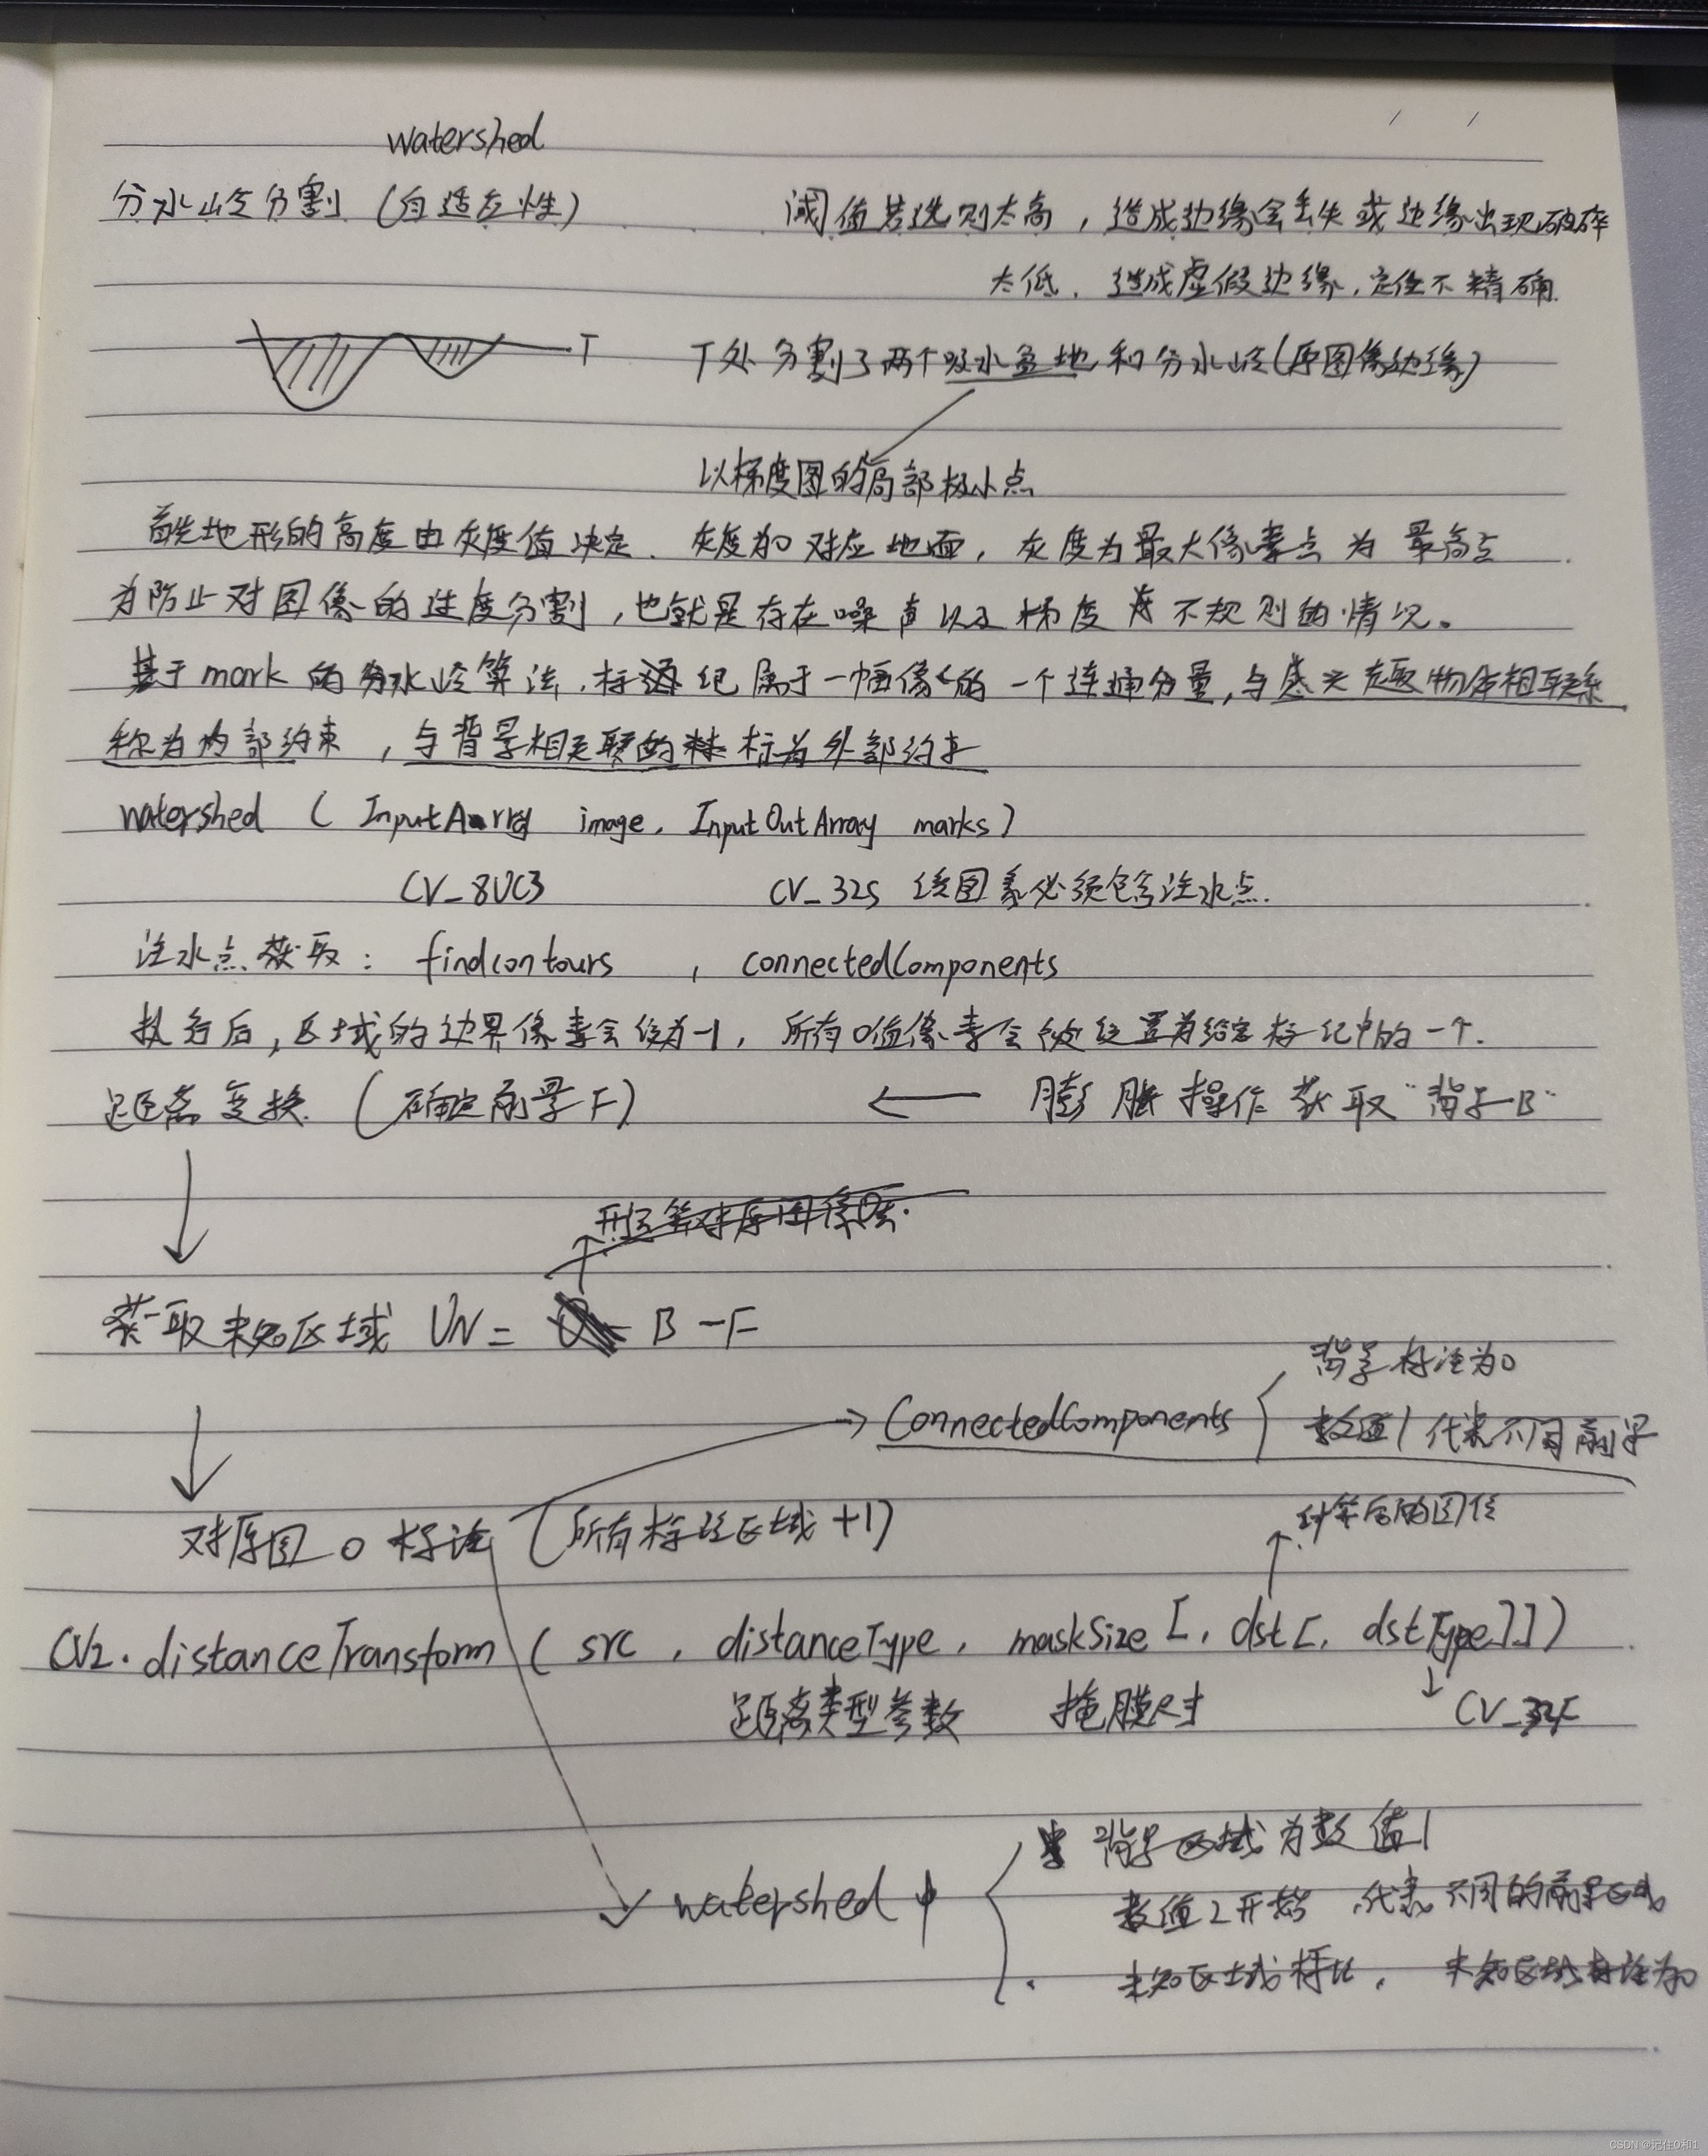 watershed
分水岭分割 (自适应性) 阈值若选则太高,造成边缘会丢失或边缘出现破碎
太低,造成虚假边缘,定位不精确.
T T处分割了两个吸水盆地和分水岭(原图像边缘)
以梯度图的局部极小点
首先地形的高度由灰度值决定. 灰度为0对应地面,灰度为最大像素点为最高点
为防止对图像的过度分割,也就是存在噪声以及梯度 不规则的情况。
基于mark的分水岭算法,标记属于一幅像的一个连通分量,与感兴趣物体相联系
称为内部约束,与背景相关联的 标为外部约束
watershed ( InputArray image, InputOutArray marks)
CV_8UC3 CV_32S 该图象必须包含注水点.
注水点获取: findcontours , connectedComponents
执行后,区域的边界像素会设为-1,所有0值像素会被设置为给定标记中的一个.
距离变换.(确定前景F) ← 膨胀操作获取"背景B"
获取未知区域 UN= B-F
背景标注为0
ConnectedComponents 数值1代表不同前景
对原图 0 标注 (所有标注区域+1)
计算后的图像
CV2.distanceTransform ( src , distanceType, maskSize [, dst [, dstType]])
距离类型参数 掩膜尺寸 CV_32F
背景区域为数值1
watershed中 数值2开始 代表不同的前景区域
未知区域标注, 未知区域标注为0
CSDN @记住0和1